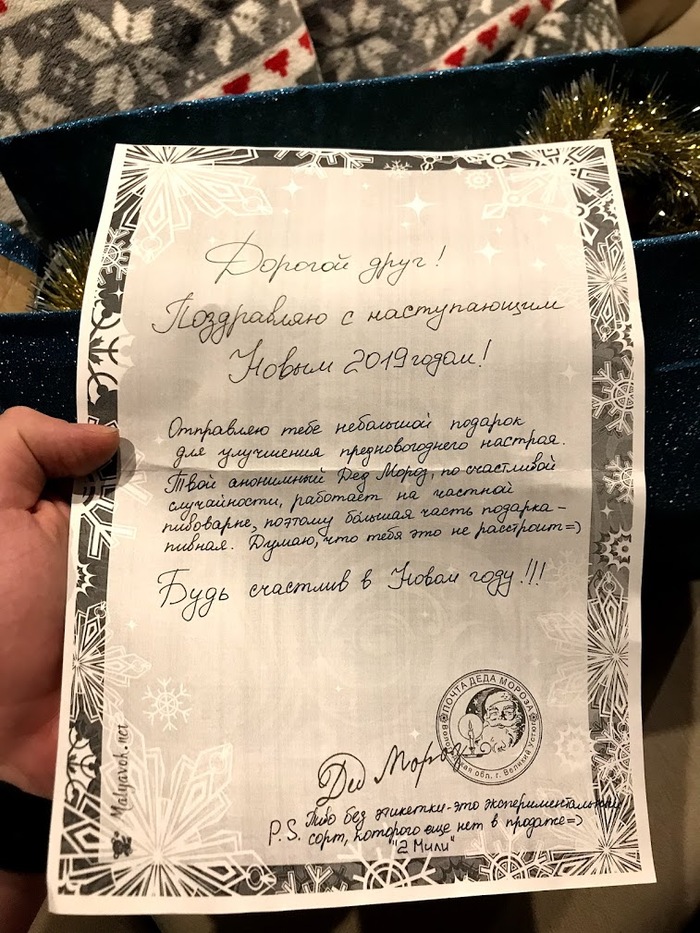 Дорогой друг!
Поздравляю с наступающим
Новым 2019 годом!
Отправляю тебе небольшой подарок
для улучшения предновогоднего настроя.
Твой анонимный Дед Мороз, по счастливой
случайности, работает на частной
пивоварне, поэтому бо́льшая часть подарка -
пивная. Думаю, что тебя это не расстроит=)
Будь счастлив в Новом году!!!
ПОЧТА ДЕДА МОРОЗА
обл. г. Великий Устюг
Дед Мороз
P.S. Пиво без этикетки-это экспериментальный
сорт, которого еще нет в продаже=)
"2 Мили"
Malyavok.net